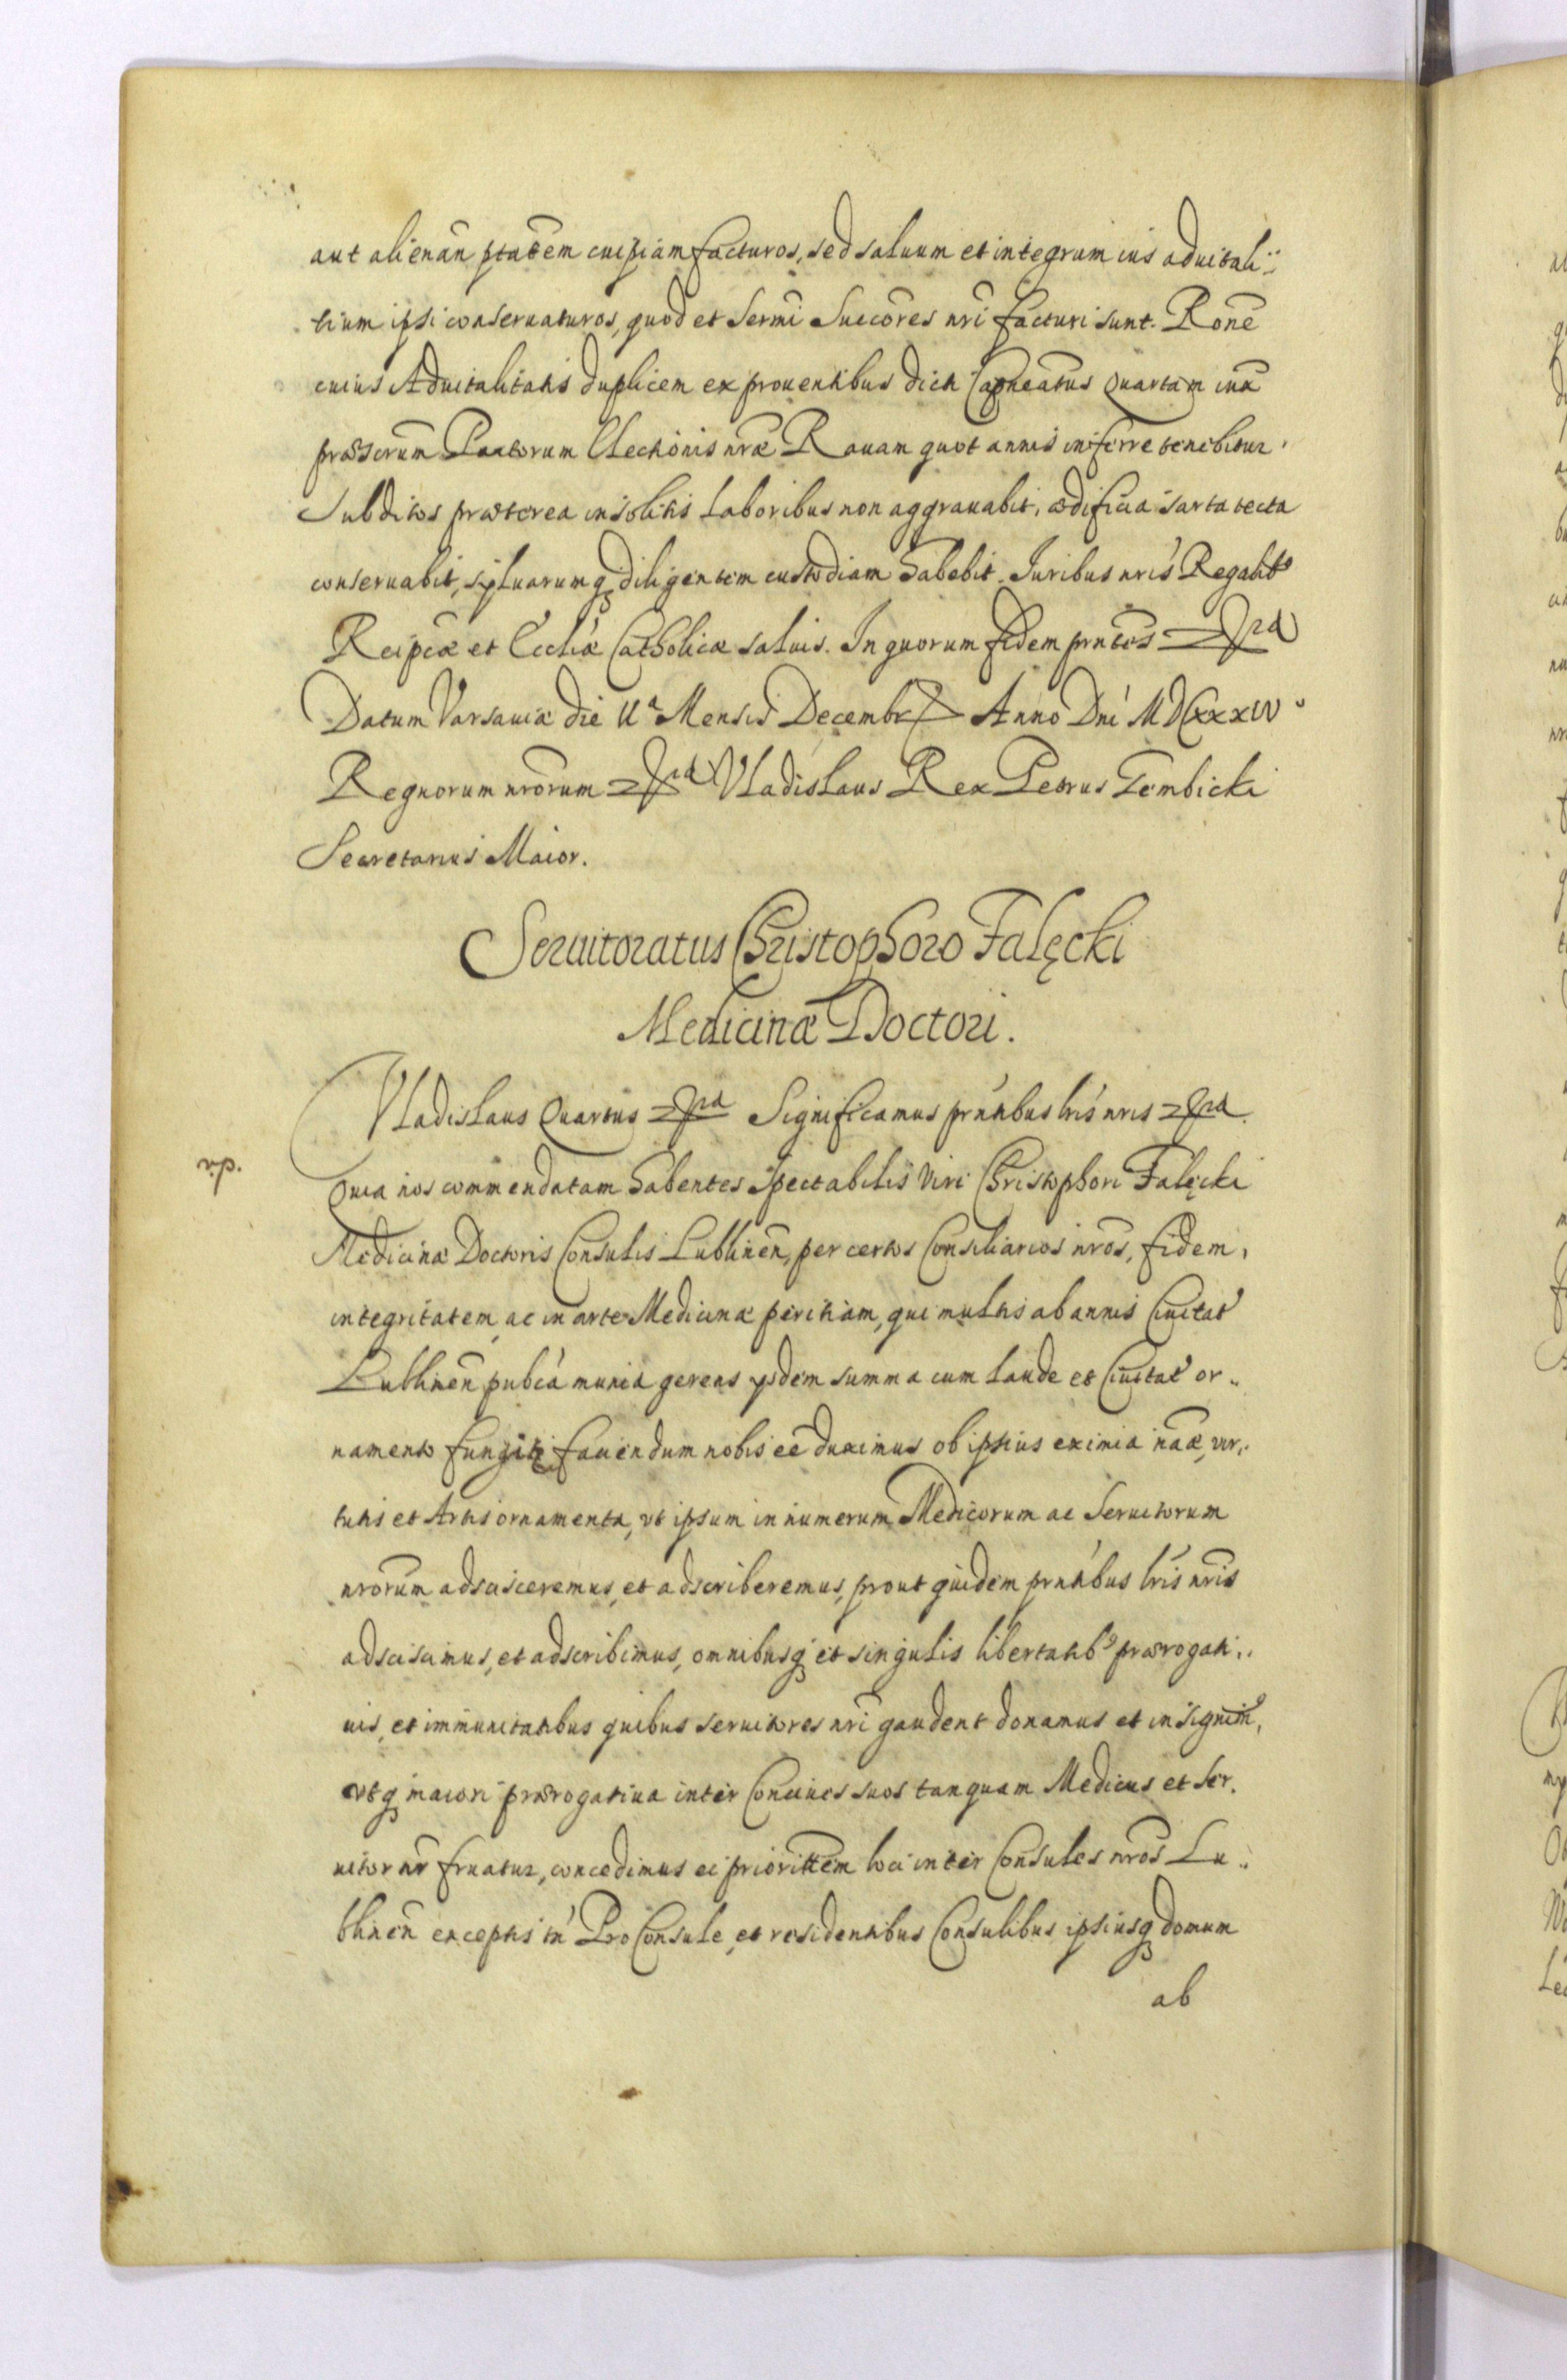 aut alienan̄ ptatem cuipiam facturos, sed saluum et integrum ius aduitali¨
tium ipsi conseruaturos, quod et Sermi Succores nri facturi sunt. Rone
cuius Aduitalitatis duplicem ex prouentibus dicti Capneatus quartam iux̄
præscrum Pactorum Electionis nræ Rauam quot annis inferre tenebitur.
Subditos præterea insolitis Laboribus non aggrauabit, ædificia sarta tecta
conseruabit, syluarumq diligentem custodiam habebit. Juribus nris Regalib9
Reipcæ et Eccliæ Catholicæ saluis. In quorum fidem pntes
Datum Varsauiæ die Mensis Decembr Anno Dni MDCXXXIV
Regnorum nrorum Vladislaus Rex Petrus Gembicki
Secretarius Maior.
Seruitoratus Christophoro Falęcki
Medicinæ Doctori.
Vladislaus Quartus Significamus pntibus lris nris
Quia nos commendatam habentes Spectabilis Viri Christophori Falęcki
Medicinæ Doctoris Consulis Lublinen̄, per certos Consiliarios nros, fidem,
integritatem, ac in arte Medicinæ peritiam, qui multis ab annis Ciuitat
Lublinen̄ pubca munia gerens ysdem summa cum Laude et Ciuitat or¨
namento fungitr fauendum nobis ee duximus ob ipsius eximia naæ, vir¨
tutis et Artis ornamenta, vt ipsum in numerum Medicorum ac Seruitorum
nrorum adscisceremus, et adscriberemus, prout quidem pntibus lris nris
adsciscimus, et adscribimus, omnibusq et singulis libertatib9 prærogati¨
uis, et immunitatibus quibus seruitores nri gaudent donamus et insignim9,
vtq maiori prærogatiua inter Conciues suos tanquam Medicus et Ser.
uitor nr fruatur, concedimus ei priorittem loci inter Consules nros Lu¨
blinen̄ exceptis tn Pro Consule, et residentibus Consulibus ipsiusq domum
ab